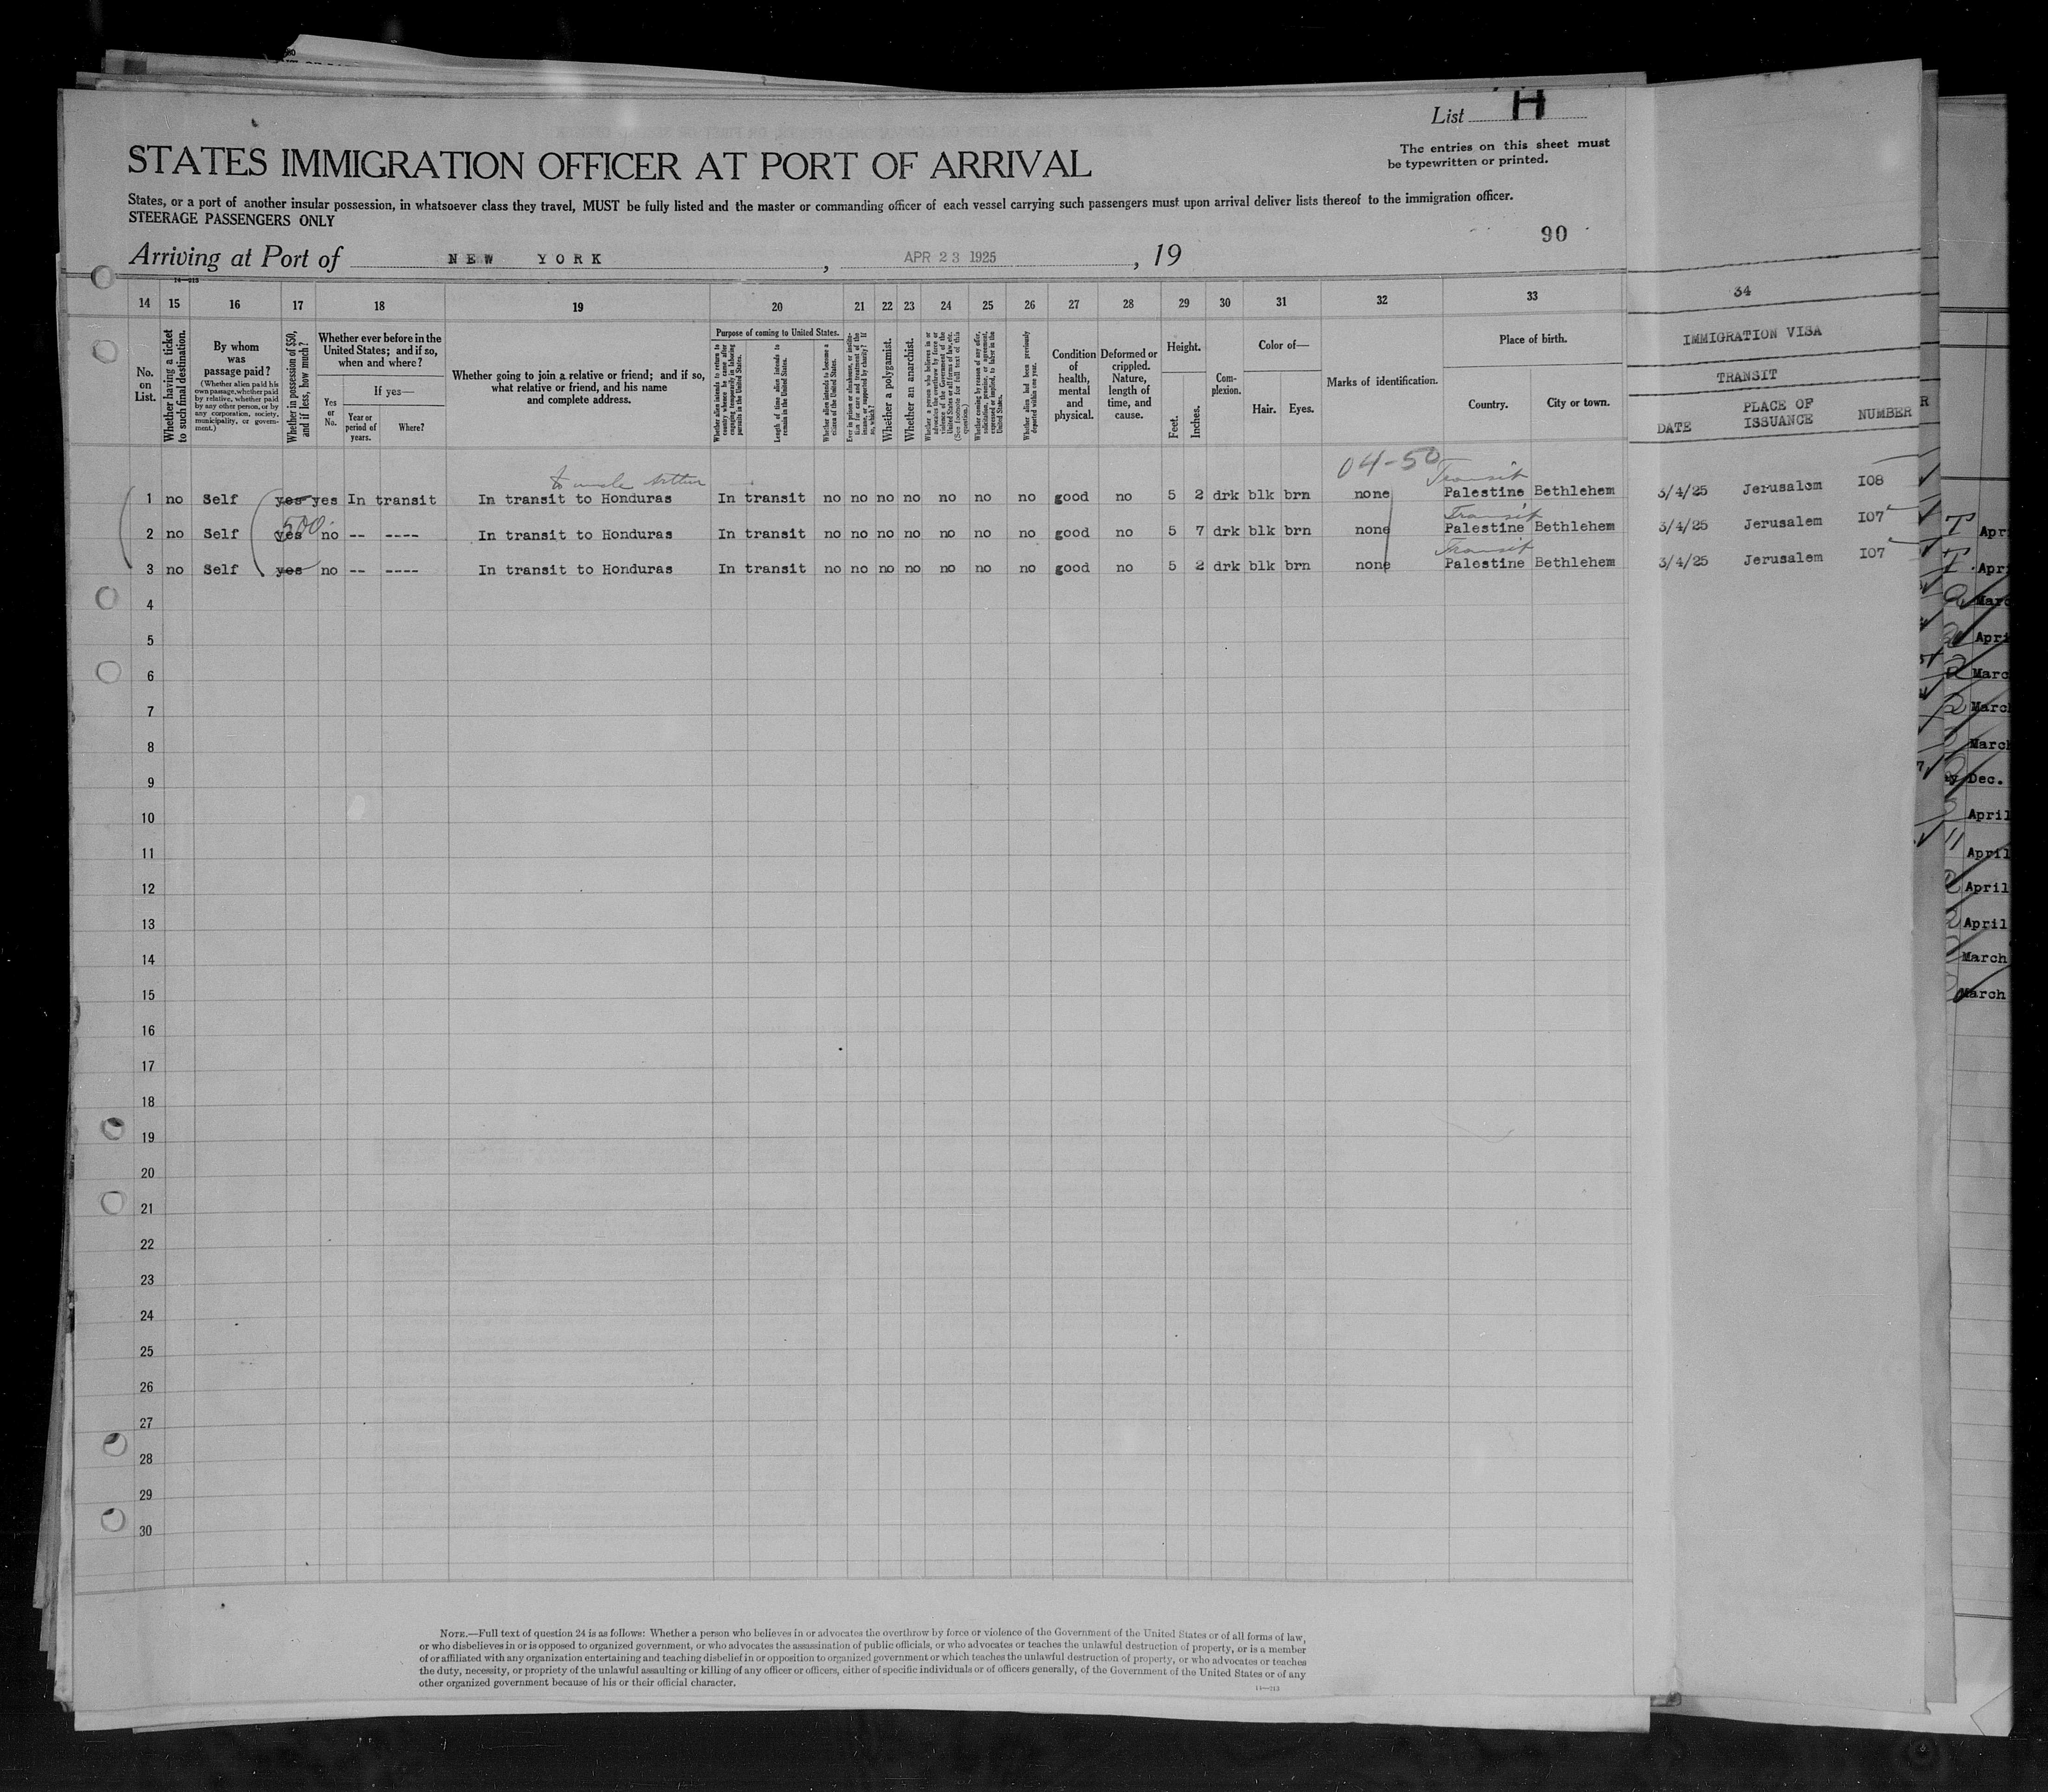 List H
The entries on this sheet must
be typewritten or printed.
STATES IMMIGRATION OFFICER AT PORT OF ARRIVAL
States, or a port of another insular possession, in whatsoever class they travel, MUST be fully listed and the master or commanding officer of each vessel carrying such passengers must upon arrival deliver lists thereof to the immigration officer.
STEERAGE PASSENGERS ONLY
90
Arriving at Port of NEW YORK , APR 23 1925 , 19
14 15 16 17 18 19 20 21 22 23 24 25 26 27 28 29 30 31 32 33 34
No. on List.
Whether having a ticket to such final destination.
By whom was passage paid?
(Whether alien paid his own passage, whether paid by relative, whether paid by any other person, or by any corporation, society, municipality, or government.)
Whether in possession of $50, and if less, how much?
Whether ever before in the United States; and if so, when and where?
If yes—
Yes or No.
Year or period of years.
Where?
Whether going to join a relative or friend; and if so, what relative or friend, and his name and complete address.
Purpose of coming to United States.
Whether alien intends to return to country whence he came after engaging temporarily in laboring pursuits in the United States.
Length of time alien intends to remain in the United States.
Whether alien intends to become a citizen of the United States.
Ever in prison or almshouse, or institution for care and treatment of the insane, or supported by charity? If so, which?
Whether a polygamist.
Whether an anarchist.
Whether a person who believes in or advocates the overthrow by force or violence of the Government of the United States or all forms of law, etc. (See footnote for full text of this question.)
Whether coming by reason of any offer, solicitation, promise, or agreement, expressed or implied, to labor in the United States.
Whether alien had been previously deported within one year.
Condition of health, mental and physical.
Deformed or crippled. Nature, length of time, and cause.
Height.
Feet. Inches.
Complexion.
Color of—
Hair. Eyes.
Marks of identification.
Place of birth.
Country. City or town.
IMMIGRATION VISA
TRANSIT
DATE PLACE OF ISSUANCE NUMBER
04-50
to uncle Arthur
Transit
1 no Self yes yes In transit In transit to Honduras In transit no no no no no no no good no 5 2 drk blk brn none Palestine Bethlehem 3/4/25 Jerusalem I08
500
Transit
2 no Self yes no -- ---- In transit to Honduras In transit no no no no no no no good no 5 7 drk blk brn none Palestine Bethlehem 3/4/25 Jerusalem I07
Transit
3 no Self yes no -- ---- In transit to Honduras In transit no no no no no no no good no 5 2 drk blk brn none Palestine Bethlehem 3/4/25 Jerusalem I07
4
5
6
7
8
9
10
11
12
13
14
15
16
17
18
19
20
21
22
23
24
25
26
27
28
29
30
Apr
Apr
Marc
Apri
Marc
Marc
March
Dec.
April
April
April
April
March
March
NOTE.—Full text of question 24 is as follows: Whether a person who believes in or advocates the overthrow by force or violence of the Government of the United States or of all forms of law,
or who disbelieves in or is opposed to organized government, or who advocates the assassination of public officials, or who advocates or teaches the unlawful destruction of property, or is a member
of or affiliated with any organization entertaining and teaching disbelief in or opposition to organized government or which teaches the unlawful destruction of property, or who advocates or teaches
the duty, necessity, or propriety of the unlawful assaulting or killing of any officer or officers, either of specific individuals or of officers generally, of the Government of the United States or of any
other organized government because of his or their official character.
14—213